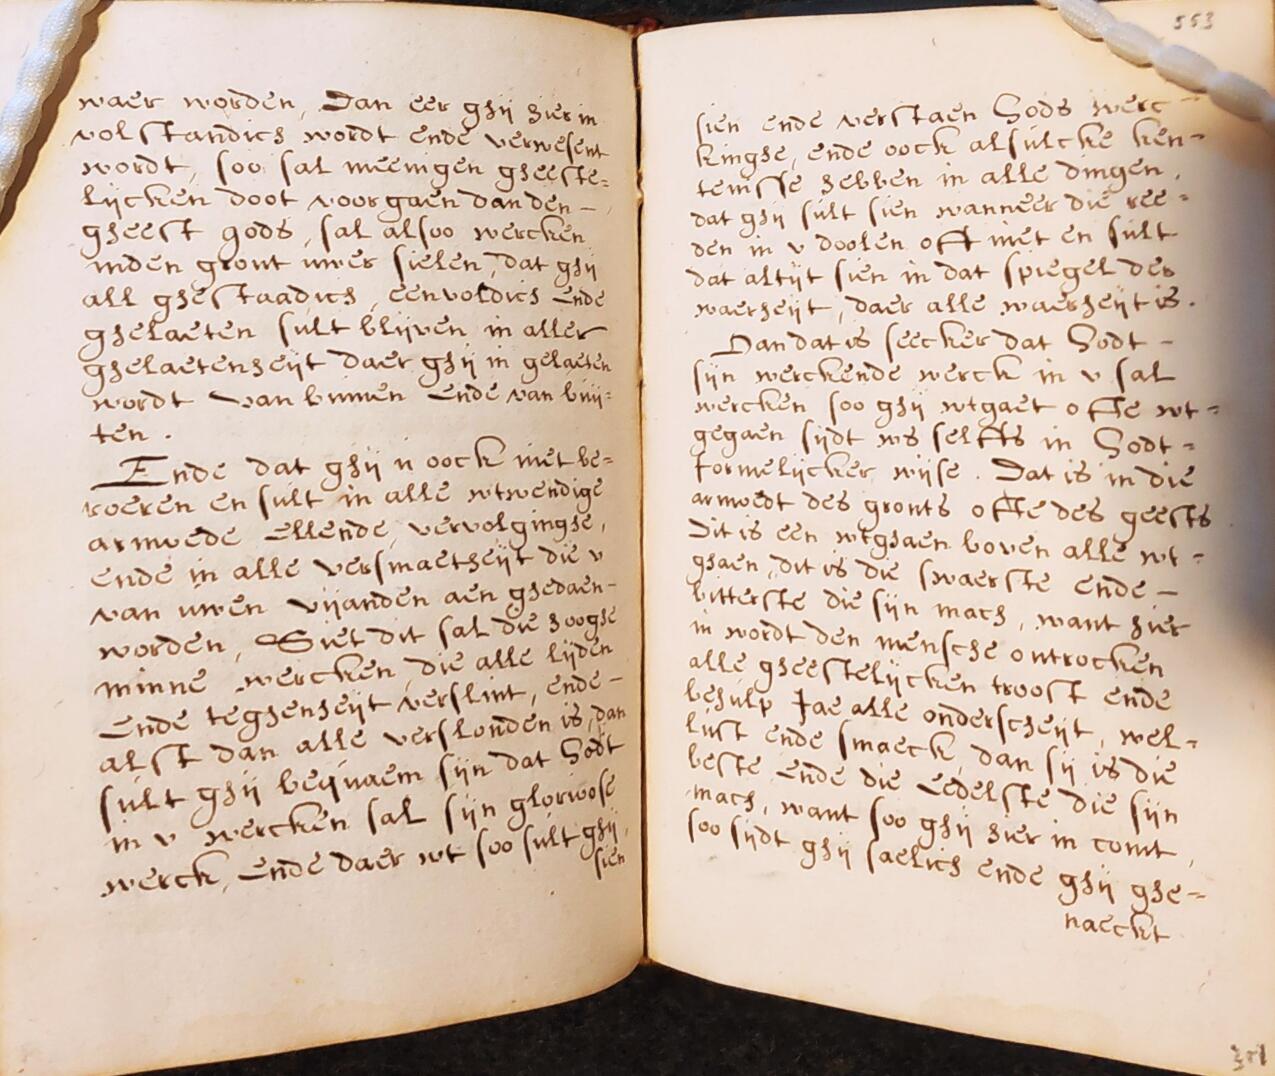 waer worden, Dan eer ghij hier in
volstandich wordt ende verwesent
wordt, soo sal meenigen gheeste=
lijcken doot voorgaen dan den –
gheest gods, sal alsoo wercken
inden gront uwer sielen, dat ghij
all ghestaadich, eenvoldich ende
ghelaeten sult blijven in aller
ghelaetenheijt daer ghij in gelaeten
wordt van binnen ende van buij=
ten.
Ende dat ghij u oock niet be=
roeren en sult in alle wtwendige
armoede Ellende, vervolginghe,
ende in alle versmaetheijt die v
van uwen vijanden aen ghedaen–
worden, Siet dit sal die hooghe
minne wercken, die alle lijden
Ende teghenheijt verslint, ende–
alst dan alle verslonden is, dan
sult ghij bequaem sijn dat Godt
in v wercken sal sijn gloriose
werck, Ende daer wt soo sult ghij,
sien
553
sien ende verstaen Gods werc–
kinghe, ende oock alsulcke ken=
tenisse hebben in alle dingen,
dat ghij sult sien wanneer die ree=
den in v doolen oft niet en sult
dat altijt sien in dat spiegel der
waerheijt, daer alle waerheijt is.
Dan dat is seecker dat Godt –
sijn werckende werck in v sal
wercken soo ghij wtgaet ofte wt=
gegaen sijdt ws selfts in Godt=
formelijcker wijse. Dat is in die
armoedt des gronts ofte des geests
Dit is een wtghaen boven alle wt=
ghaen, dit is die swaerste Ende–
bitterste die sijn mach, want hier
in wordt den mensche ontrocken
alle gheestelijcken troost ende
behulp Jae alle onderscheijt, wel=
lust ende smaeck, dan sij is die
beste Ende die Eedelste die sijn
mach, want soo ghij hier in comt,
soo sijdt ghij saelich ende ghij ghe=
naeckt